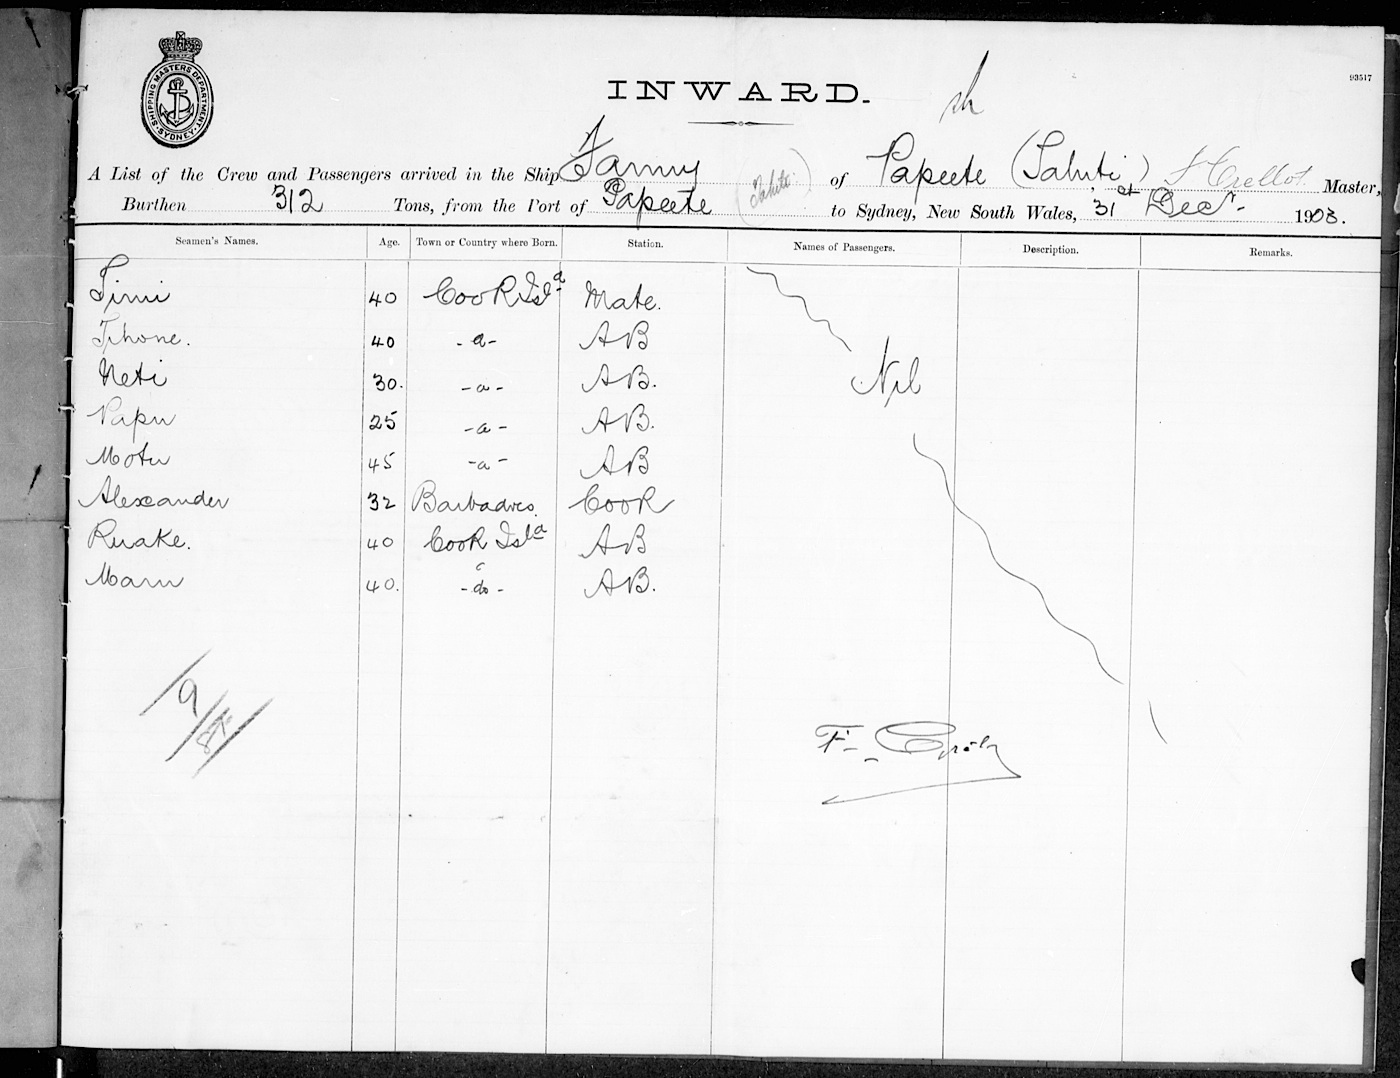 SHIPPING MASTERS DEPARTMENT
SYDNEY
93517
INWARD.
A List of the Crew and Passengers arrived in the Ship Fanny of Papeete (Tahiti) Master,
Burthen 312 Tons, from the Port of Papeete (Tahiti) to Sydney, New South Wales, 31st Decr. 1908.
Seamen's Names. Age. Town or Country where Born. Station. Names of Passengers. Description. Remarks.
Timi 40 Cook Isld Mate.
Tihone. 40 -do- AB
Neti 30. -do- AB.
Papu 25 -do- AB.
Motu 45 -do- AB
Alexander 32 Barbadoes. Cook
Ruake. 40 Cook Isld AB
Maru 40. -do- AB.
Nil
9